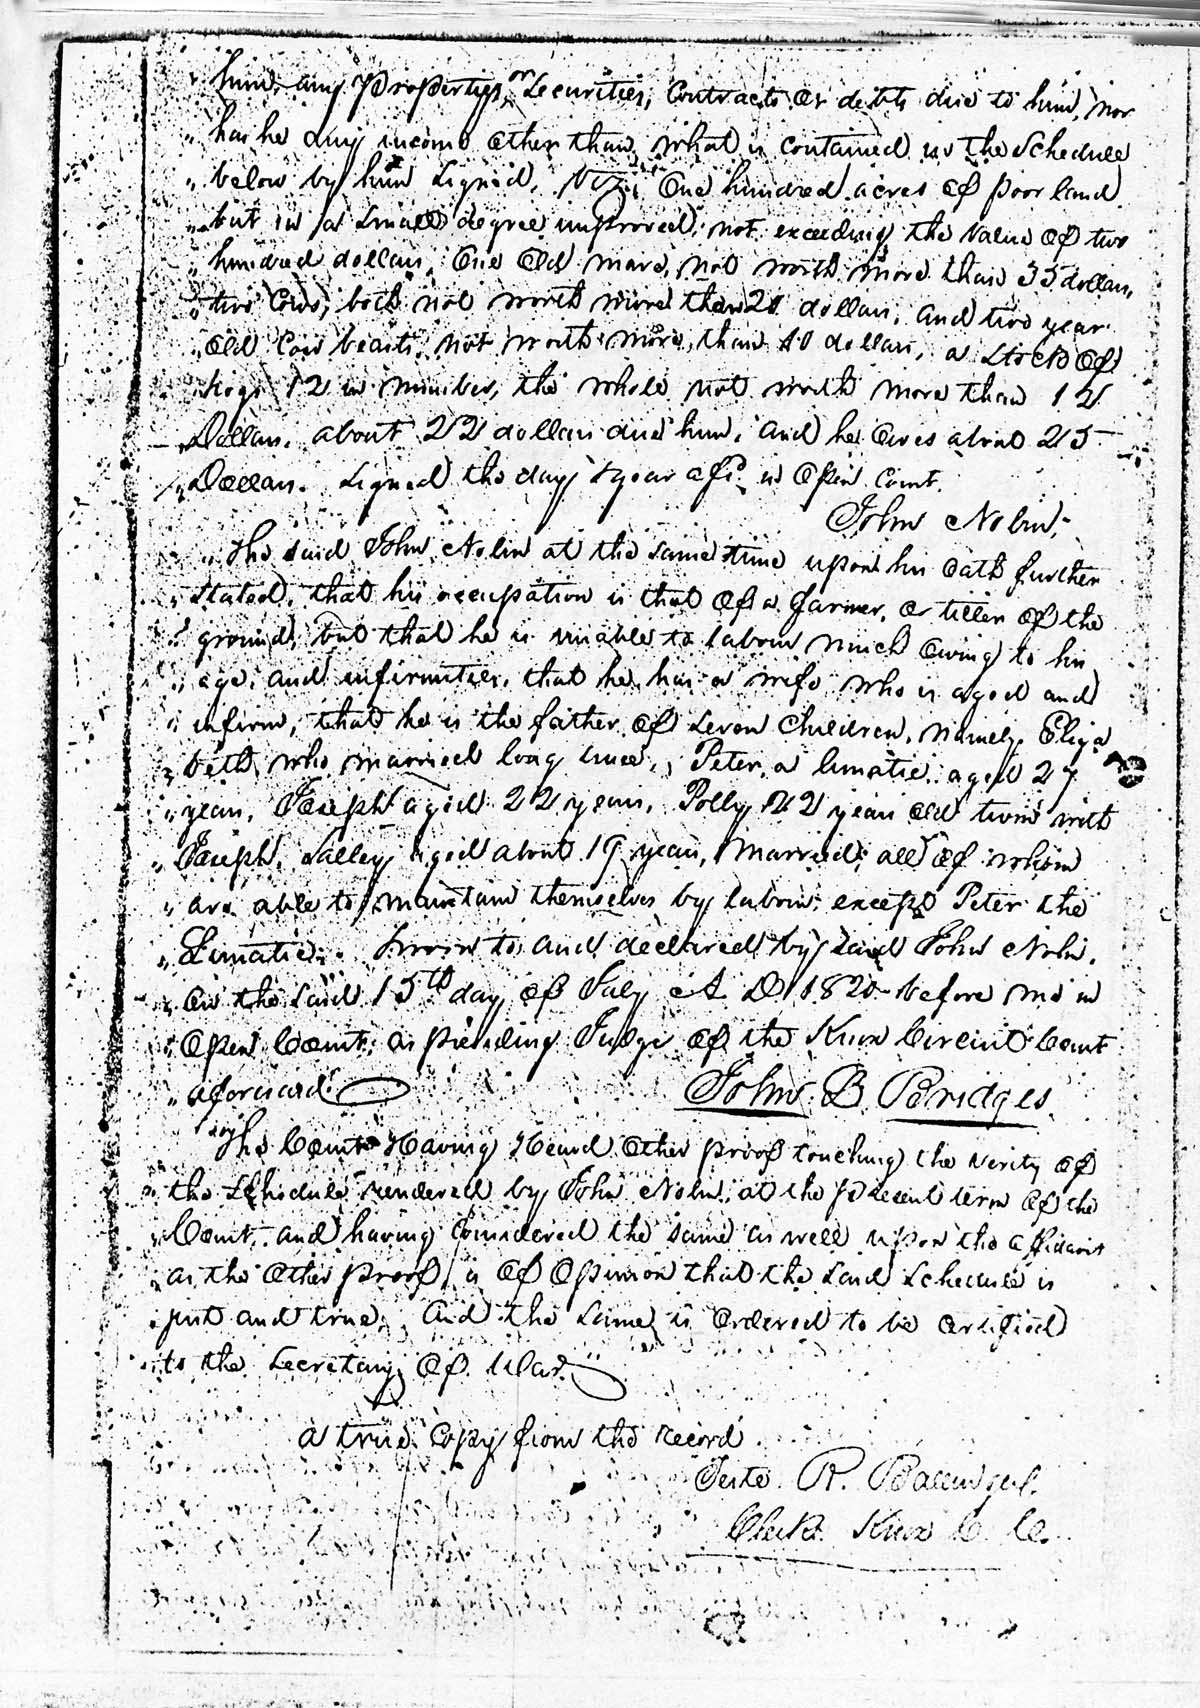 him, any Property, or Securities, Contracts or debts due to him, nor
has he any income other than what is contained in the Schedule
below by him Signed, Viz; One hundred acres of poor land
but in a small degree improved, not exceeding the Value of two
hundred dollars, One Old mare, not worth more than 35 dollars,
two Cows, both not worth more than 20 dollars, and two year
Old Cow beasts, not worth more, than 10 dollars, a Stock of
hogs 12 in number, the whole not worth more than 12
Dollars. about 22 dollars due him, and he Owes about 25
Dollars. Signed the day & year afsd in Open Court.
John Nolin,
The said John Nolin at the same time upon his Oath further
stated, that his occupation is that of a farmer, or tiller of the
ground, but that he is unable to labour much Owing to his
age, and infirmities, that he has a wife who is aged and
infirm, that he is the father of seven Children, namely Eliza
beth, who married long since, Peter, a lunatic, aged 27
years, Joseph aged 22 years, Polly 22 years old twin with
Joseph, Salley aged about 19 years, Married, all of whom
are able to maintain themselves by labour except Peter the
Lunatic. Sworn to and declared by said John Nolin,
on the said 15th day of July A D 1820 before me in
Open Court, as presiding Judge of the Knox Circuit Court
aforesaid.
John B. Bridges
The Court Having Heard Other proof touching the verity of
the Schedule rendered by John Nolin, at the present term of the
Court, and having Considered the same as well upon the affidavit
as the Other proof, is of Opinion that the said Schedule is
just and true, And the same is Ordered to be certified
to the Secretary Of War.
a true Copy from the record
Teste R. Ballinger
Clerk Knox C. C.